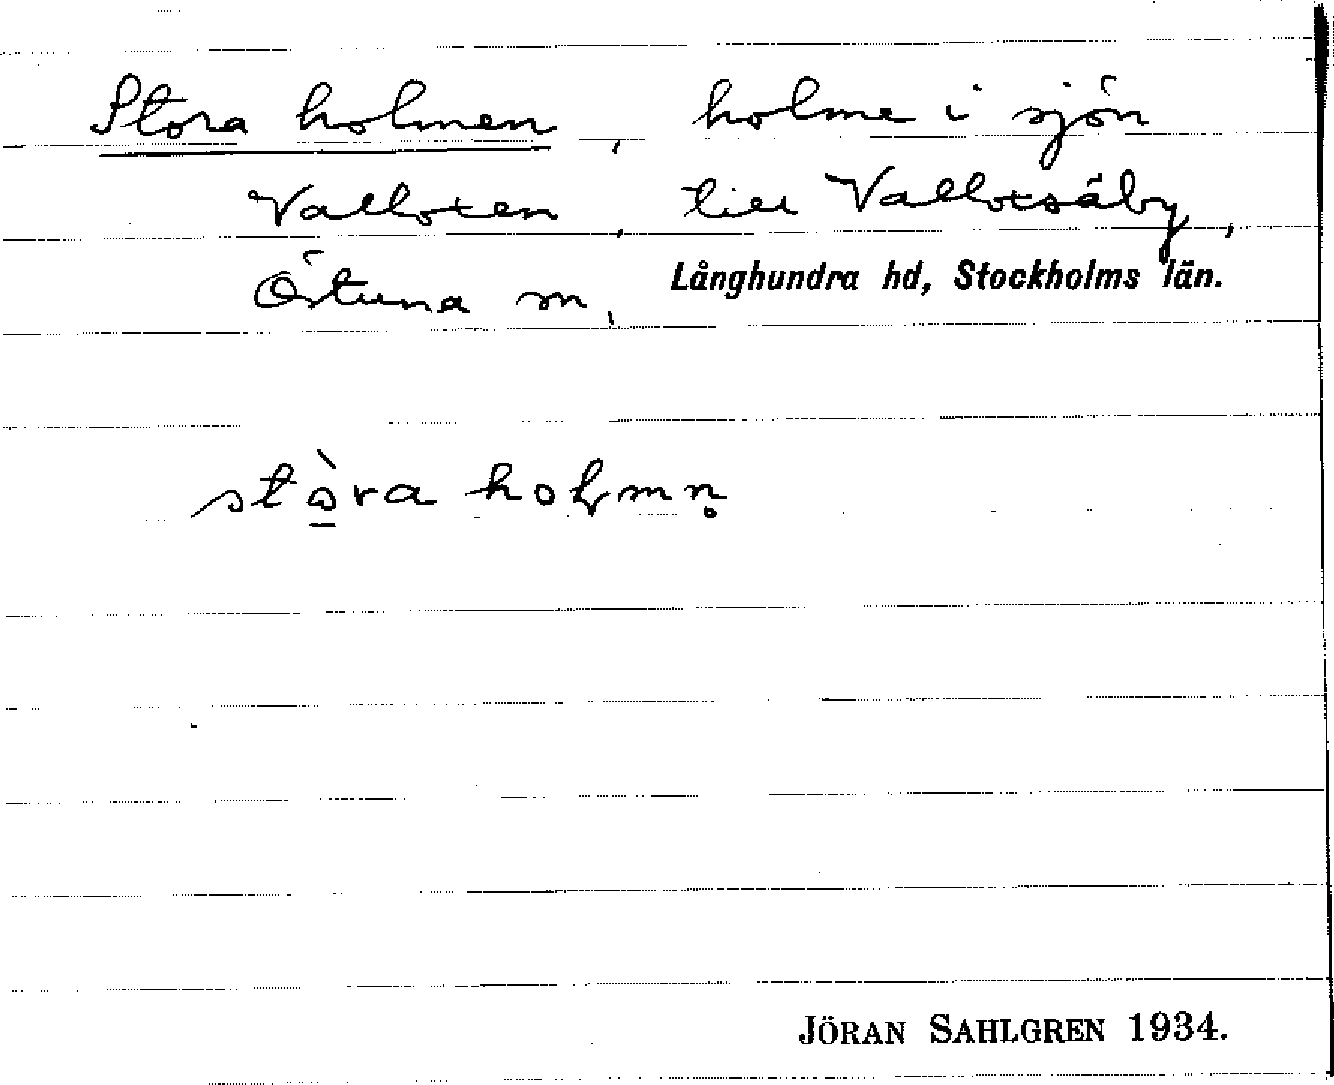 Stora holmen, holme i sjön
Valloxen, till Valloxsäby,
Östuna sn, Långhundra hd, Stockholms län.
stò̱ra holmn̥
JÖRAN SAHLGREN 1934.